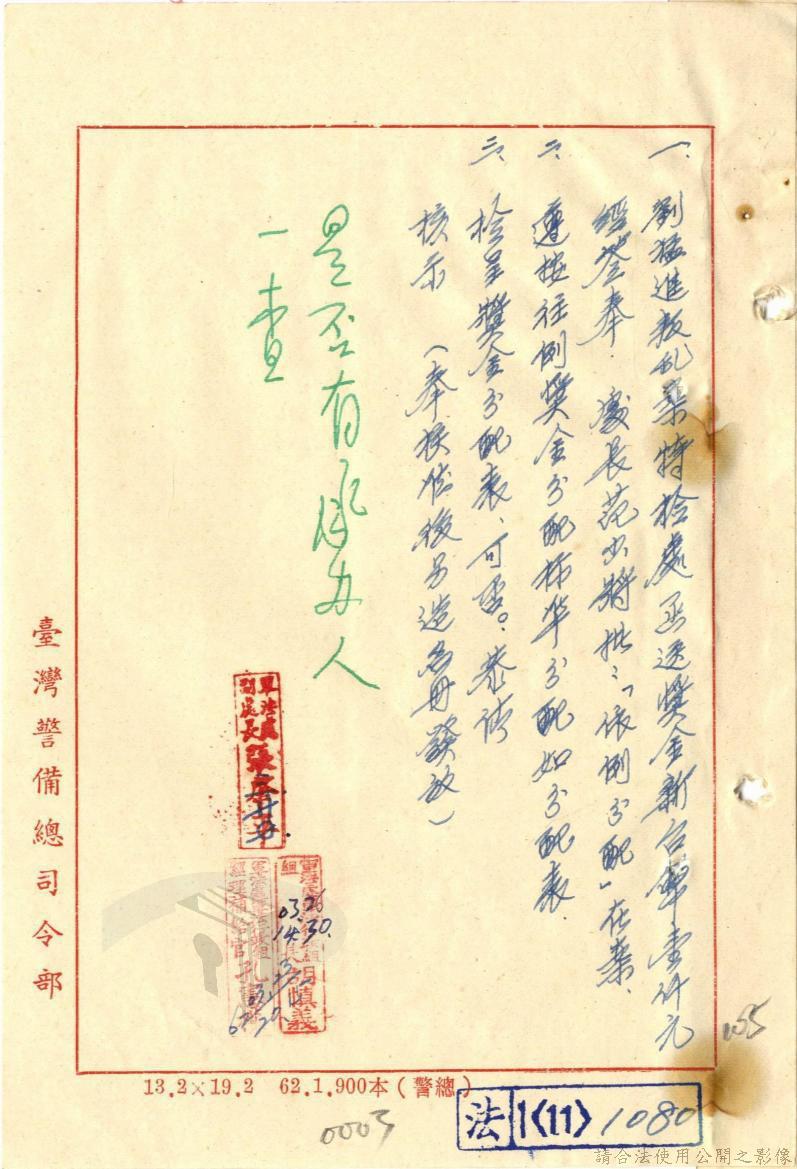 一、劉猛進叛乱案特檢處函送獎金新台幣壹仟元
經簽奉 處長范少將批:「依例分配」在案.
二、遵按往例獎金分配标準分配如分配表.
三、檢呈獎金分配表、可否。恭請
核示 (奉核准後另造名冊發放)
是否有承办人
一查
軍法處
副處長
臺灣警備總司令部
13.2×19.2 62.1.900本(警總)
法 1〈11〉 1080
0003
155
請合法使用公開之影像